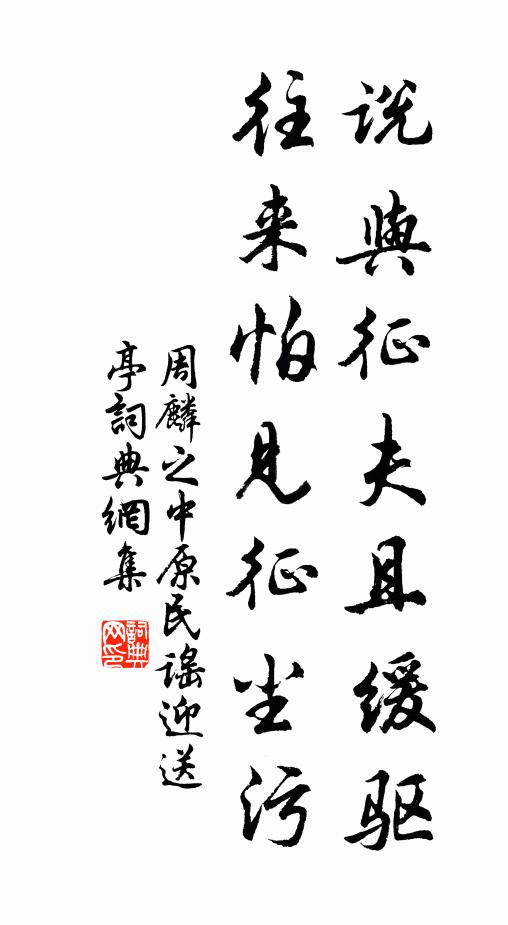 说与征夫且缓驱
往来怕见征尘污
周麟之中原民谣迎送
亭词典网集
詞典
网印